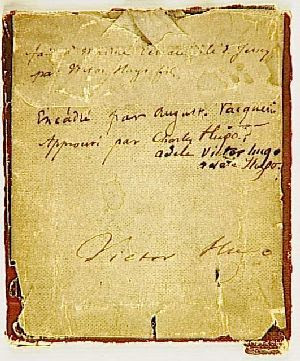 par Victor Hugo fils.
Encadié par August. Vacquerie
Approuvé par Charles Hugo.
adele Victor hugo
adele Hugo.
Victor Hugo